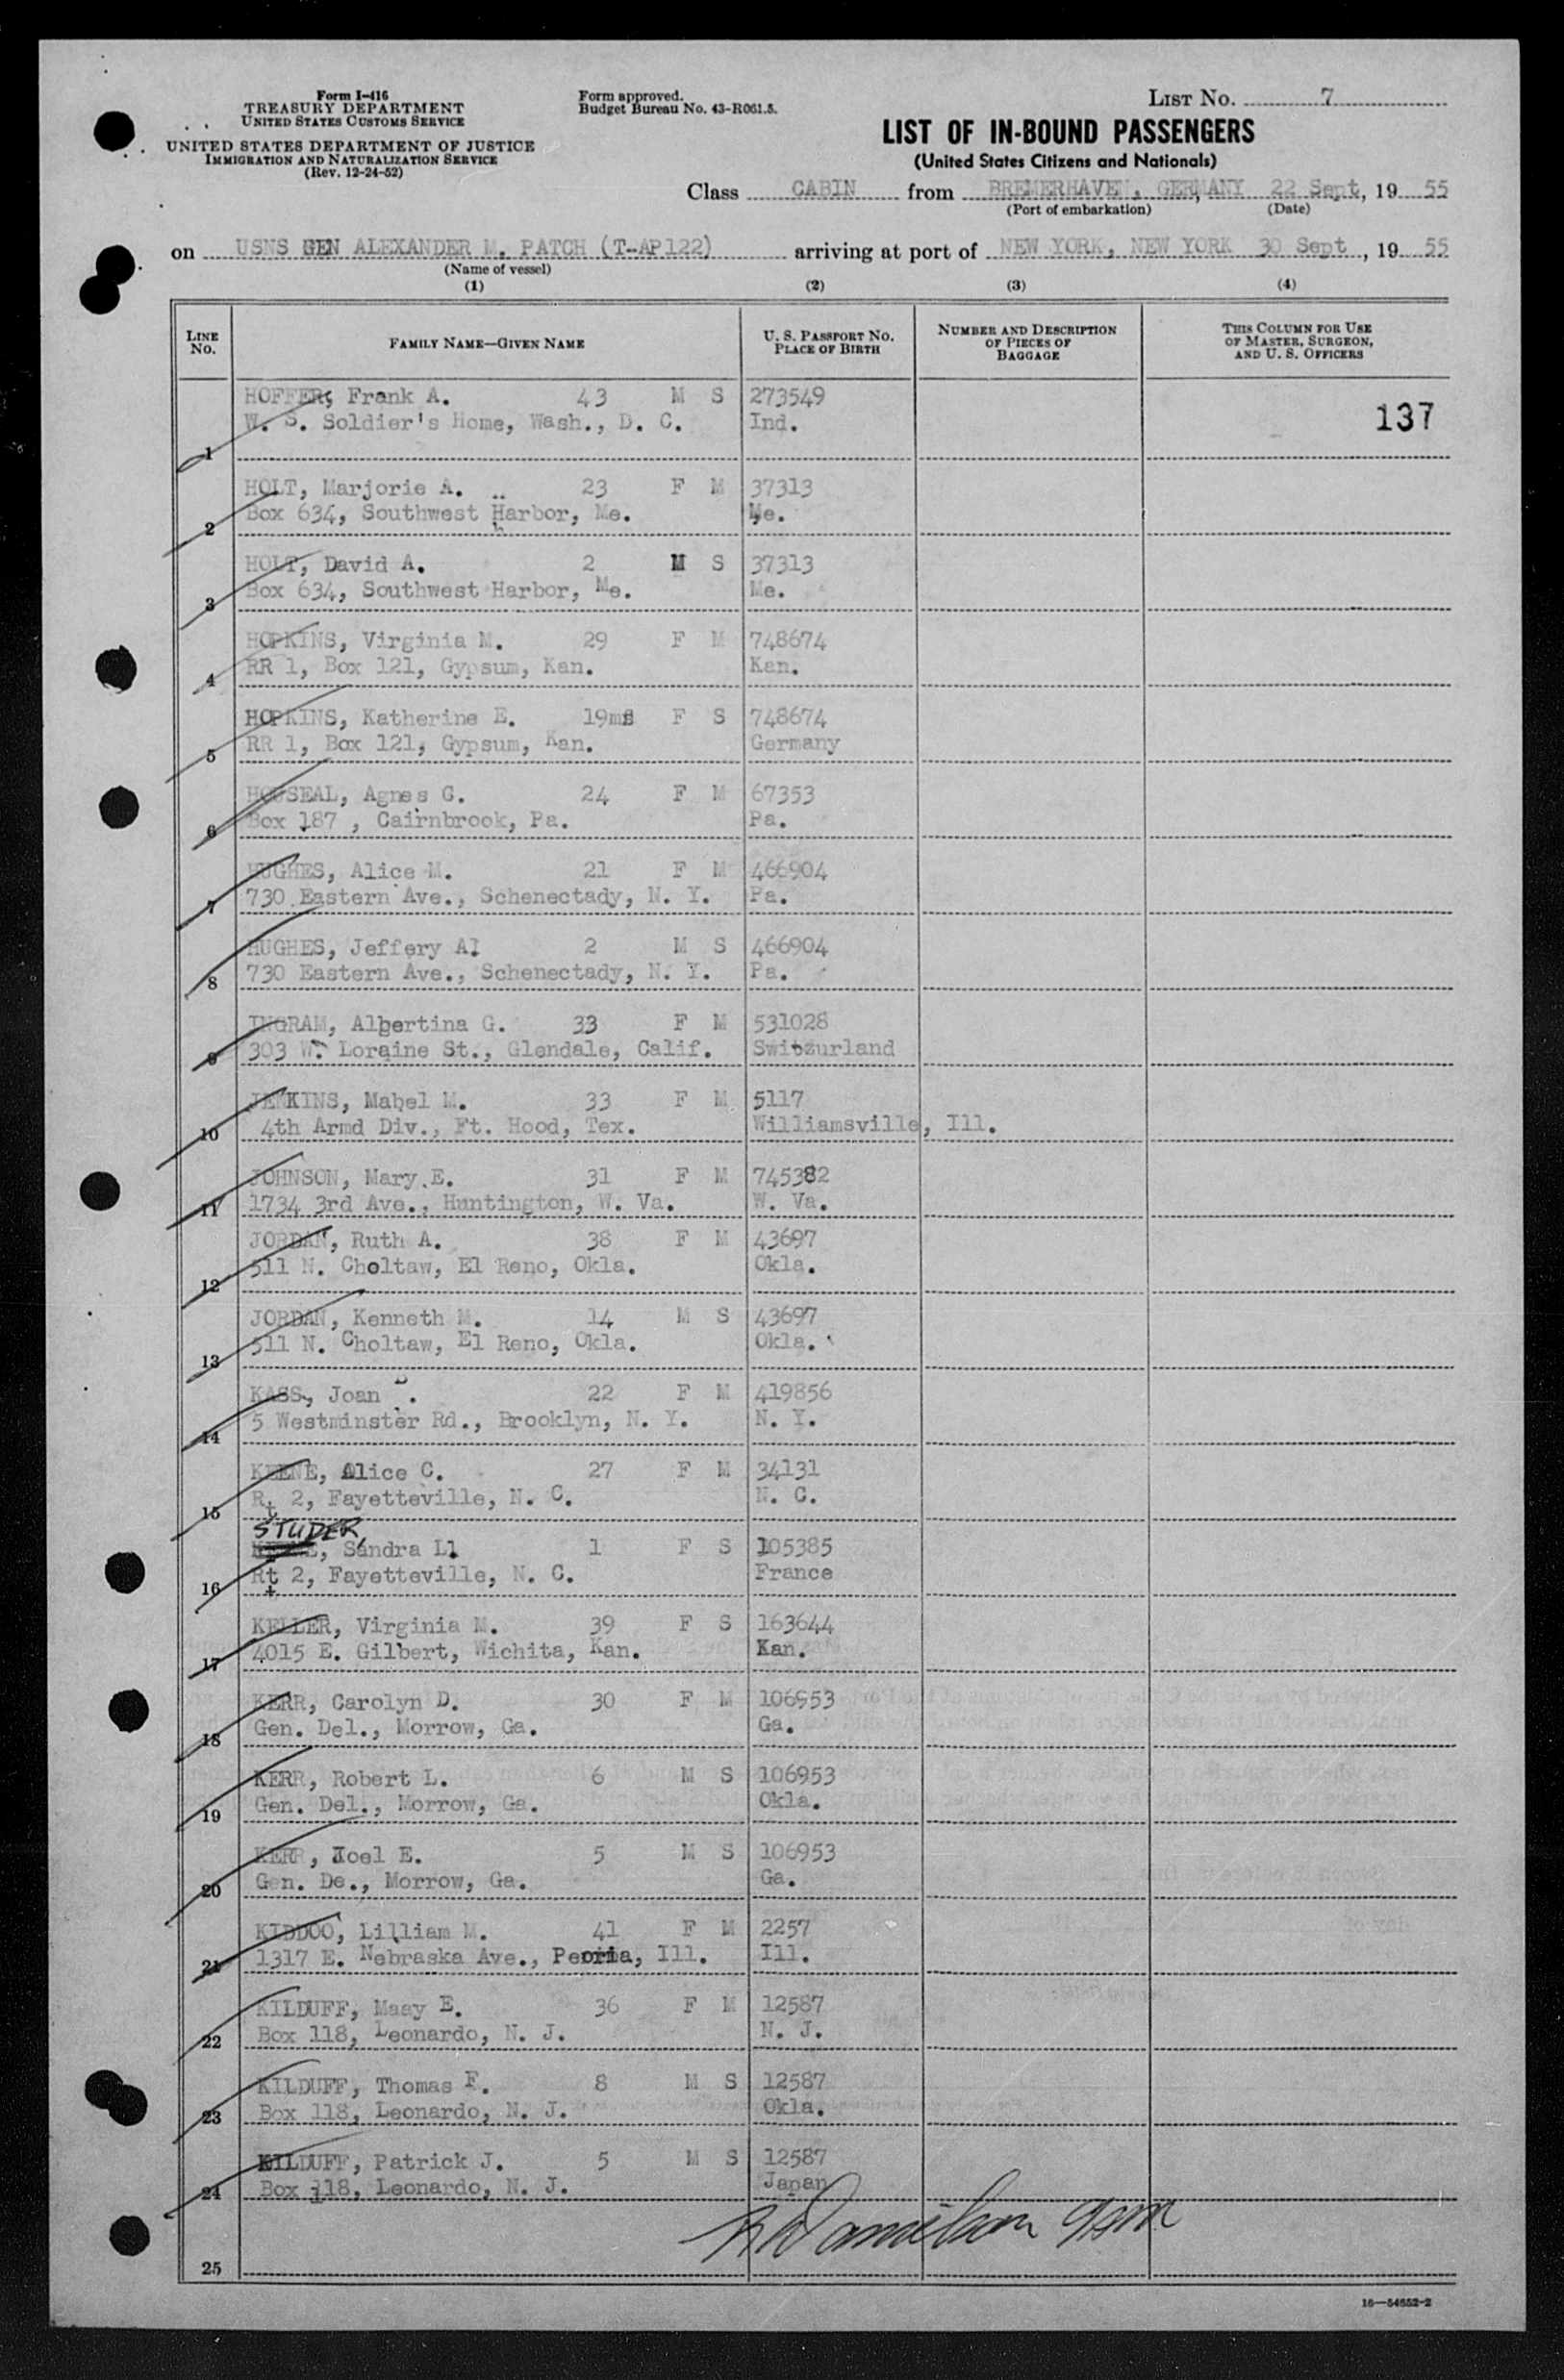 Form I-416
TREASURY DEPARTMENT
UNITED STATES CUSTOMS SERVICE
UNITED STATES DEPARTMENT OF JUSTICE
IMMIGRATION AND NATURALIZATION SERVICE
(Rev. 12-24-52)
Form approved.
Budget Bureau No. 43-R061.5.
LIST NO. 7
LIST OF IN-BOUND PASSENGERS
(United States Citizens and Nationals)
Class CABIN from BREMERHAVEN, GERMANY 22 Sept, 19 55
(Port of embarkation) (Date)
on USNS GEN ALEXANDER M. PATCH (T-AP122) arriving at port of NEW YORK, NEW YORK 30 Sept, 19 55
(Name of vessel)
(1) (2) (3) (4)
LINE NO. FAMILY NAME—GIVEN NAME U. S. PASSPORT NO. PLACE OF BIRTH NUMBER AND DESCRIPTION OF PIECES OF BAGGAGE THIS COLUMN FOR USE OF MASTER, SURGEON, AND U. S. OFFICERS
HOFFER, Frank A. 43 M S 273549
W. S. Soldier's Home, Wash., D. C. Ind. 137
1
HOLT, Marjorie A. 23 F M 37313
2 Box 634, Southwest Harbor, Me. Me.
HOLT, David A. 2 M S 37313
3 Box 634, Southwest Harbor, Me. Me.
HOPKINS, Virginia M. 29 F M 748674
4 RR 1, Box 121, Gypsum, Kan. Kan.
HOPKINS, Katherine E. 19ms F S 748674
5 RR 1, Box 121, Gypsum, Kan. Germany
HOUSEAL, Agnes G. 24 F M 67353
6 Box 187 , Cairnbrook, Pa. Pa.
HUGHES, Alice M. 21 F M 466904
7 730 Eastern Ave., Schenectady, N. Y. Pa.
HUGHES, Jeffery A. 2 M S 466904
8 730 Eastern Ave., Schenectady, N. Y. Pa.
INGRAM, Albertina G. 33 F M 531028
9 303 W. Loraine St., Glendale, Calif. Switzurland
JENKINS, Mabel M. 33 F M 5117
10 4th Armd Div., Ft. Hood, Tex. Williamsville, Ill.
JOHNSON, Mary E. 31 F M 745382
11 1734 3rd Ave., Huntington, W. Va. W. Va.
JORDAN, Ruth A. 38 F M 43697
12 511 N. Choltaw, El Reno, Okla. Okla.
JORDAN, Kenneth M. 14 M S 43697
13 511 N. Choltaw, El Reno, Okla. Okla.
KASS, Joan . 22 F M 419856
14 5 Westminster Rd., Brooklyn, N. Y. N. Y.
KEENE, Alice C. 27 F M 34131
15 Rt 2, Fayetteville, N. C. N. C.
STUDER,
KEENE, Sandra L. 1 F S 105385
16 Rt 2, Fayetteville, N. C. France
KELLER, Virginia M. 39 F S 163644
17 4015 E. Gilbert, Wichita, Kan. Kan.
KERR, Carolyn D. 30 F M 106953
18 Gen. Del., Morrow, Ga. Ga.
KERR, Robert L. 6 M S 106953
19 Gen. Del., Morrow, Ga. Okla.
KERR, Joel E. 5 M S 106953
20 Gen. De., Morrow, Ga. Ga.
KIDDOO, Lilliam M. 41 F M 2257
21 1317 E. Nebraska Ave., Peoria, Ill. Ill.
KILDUFF, Maay E. 36 F M 12587
22 Box 118, Leonardo, N. J. N. J.
KILDUFF, Thomas F. 8 M S 12587
23 Box 118, Leonardo, N. J. Okla.
KILDUFF, Patrick J. 5 M S 12587
24 Box 118, Leonardo, N. J. Japan
25
16—54652-2